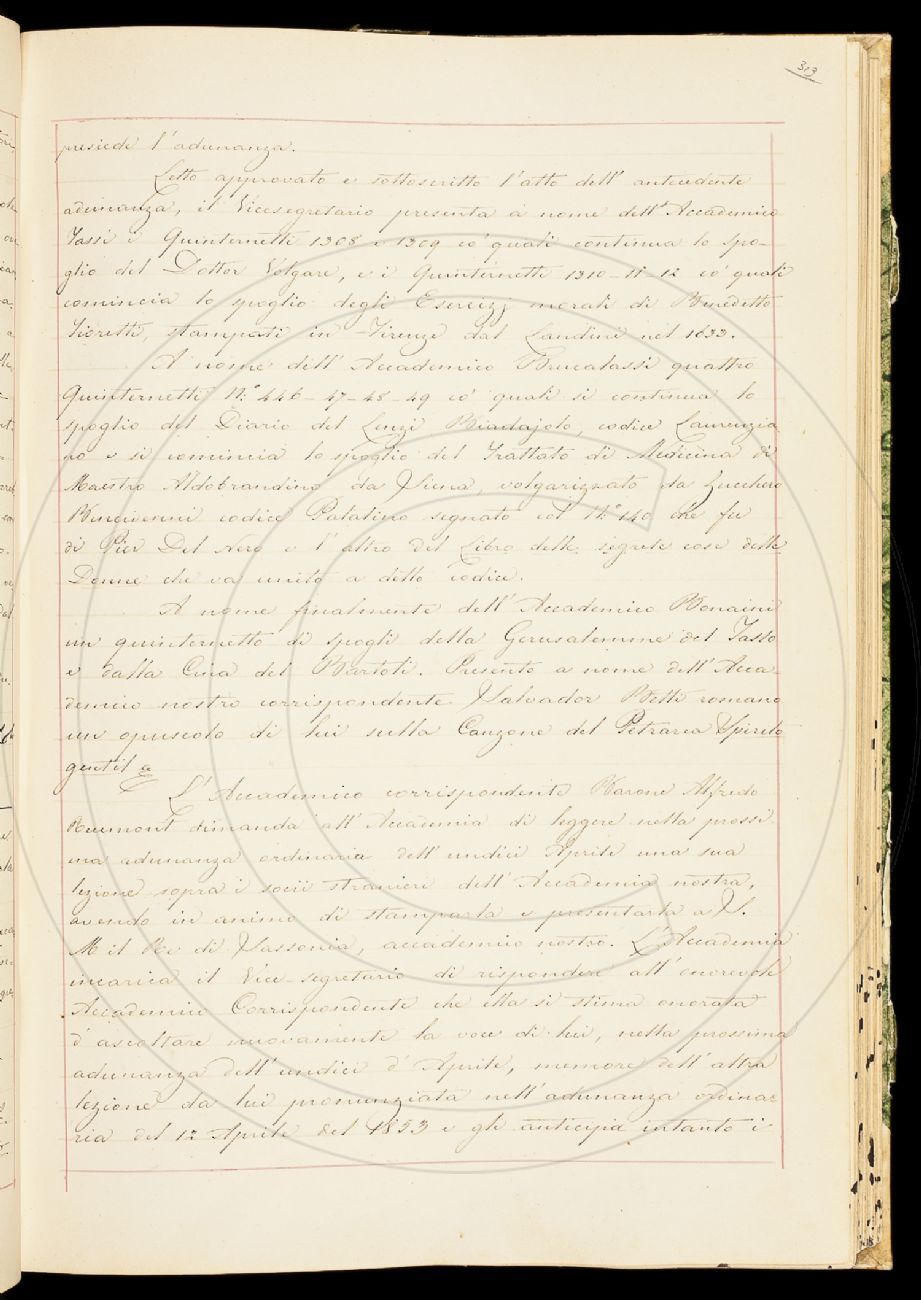 313
presiede l'adunanza.
Letto approvato e sottoscritto l'atto dell'antecedente
adunanza, il Vicesegretario presenta a nome dell'Accademico
Tassi i Quinternetti 1308 e 1309 co' quali continua lo spo-
glio del Dottor Volgare, e i Quinternetti 1310-11-12 co' quali
comincia lo spoglio degli Esercizj morali di Benedetto
Fioretti, stampati in Firenze dal Landini nel 1633.
A nome dell'Accademico Brucalassi quattro
Quinternetti N.° 446-47-48-49 co' quali si continua lo
spoglio del Diario del Lenzi Biadajolo, codice Laurenzia
no e si comincia lo spoglio del Trattato di Medicina di
Maestro Aldobrandino da Siena, volgarizzato da Zucchero
Bencivenni codice Palatino segnato col N.° 140 che fu
di Pier Del Nero e l'altro del Libro delle segrete cose delle
Donne che va unito a detto codice.
A nome finalmente dell'Accademico Bonaini
un quinternetto di spogli della Gerusalemme del Tasso
e dalla Cina del Bartoli. Presentò a nome dell'Acca-
demico nostro corrispondente Salvador Betti romano
un opuscolo di lui sulla Canzone del Petrarca Spirto
gentil &
L'Accademico corrispondente Barone Alfredo
Reumont dimanda all'Accademia di leggere nella prossi
ma adunanza ordinaria dell'undici Aprile una sua
lezione sopra i socii stranieri dell'Accademia nostra,
avendo in animo di stamparla e presentarla a S.
M il Re di Sassonia, accademico nostro. L'Accademia
incarica il Vice-segretario di rispondere all'onorevole
Accademico Corrispondente che ella si stima onorata
d'ascoltare nuovamente la voce di lui, nella prossima
adunanza dell'undici d'Aprile, memore dell'altra
lezione da lui pronunziata nell'adunanza ordina-
ria del 12 Aprile del 1853 e gli anticipa intanto i